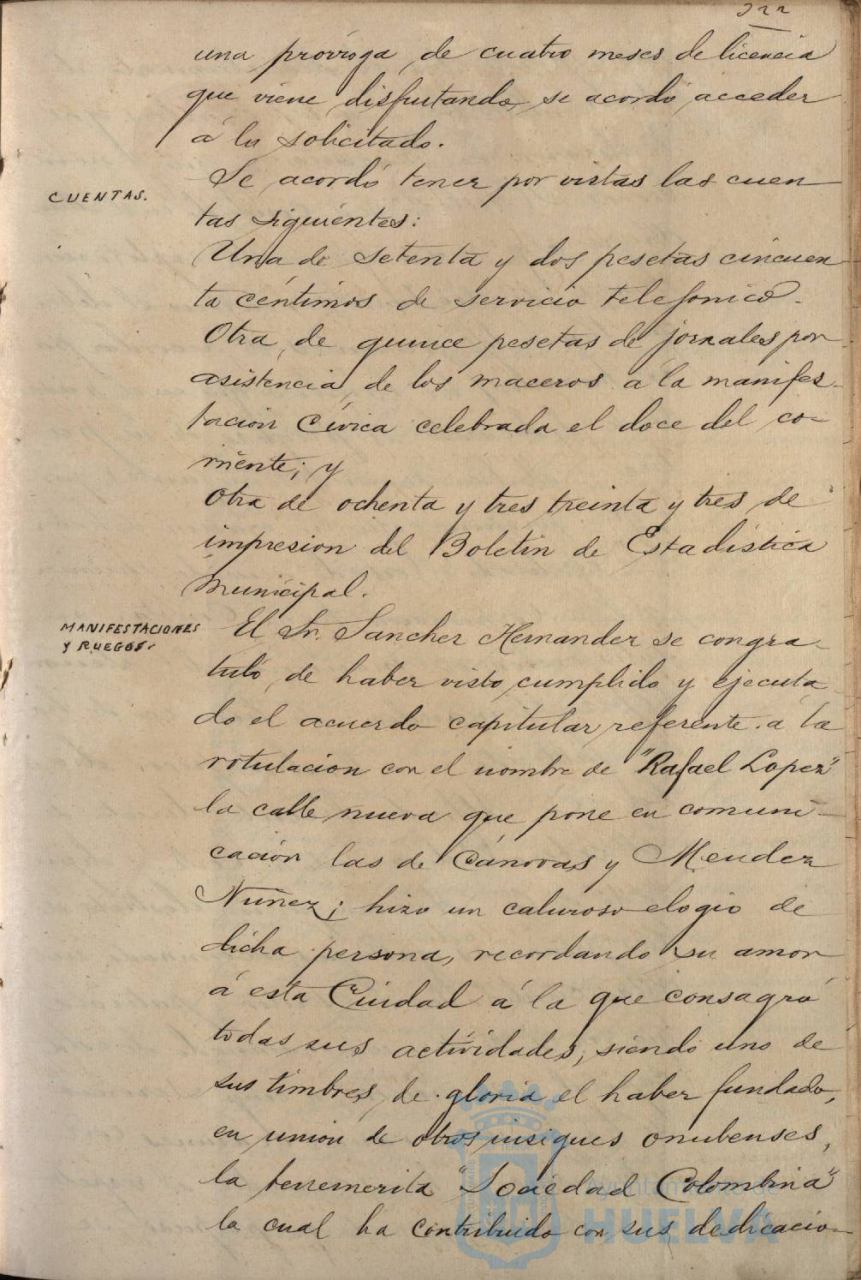 222
una próvroga, de cuatro meses de licencia
que viene disfrutando, se acordó acceder
á lo solicitado.
CUENTAS.
Se acordó tener por vistas las cuen
tas siguientes:
Una de setenta y dos pesetas cincuen
ta céntimos de servicio telefonico.
Otra, de quince pesetas de jornales por
asistencia, de los maceros á la manifes-
tacion Cívica celebrada el doce del co-
rriente; y
Otra de ochenta y tres treinta y tres de
impresion del Boletin de Estadística
Municipal.
MANIFESTACIONES
Y RUEGOS.
El Sr. Sanchez Hernandez se congra-
tuló, de haber visto cumplido y ejecuta-
do el acuerdo capitular referente a la
rotulacion con el nombre de "Rafael Lopez"
la calle nueva que pone en comuni-
cación las de Cánovas y Mendez
Nuñez; hizo un caluroso elogio de
dicha persona, recordando su amor
á esta Ciudad á la que consagró
todas sus actividades, siendo uno de
sus timbres, de gloria el haber fundado,
en union de otros insignes onubenses,
la benemerita "Sociedad Colombina"
la cual ha contribuido con sus dedicacio-
Ayuntamiento de
HUELVA